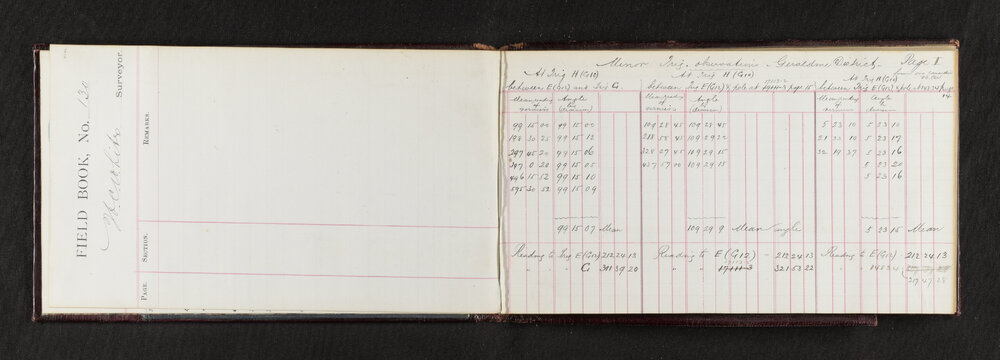 FIELD BOOK, NO. 130
Surveyor.
PAGE. SECTION. REMARKS.
Minor Trig. observations - Geraldine District - Page 1
At Trig H (G10)
between E(G12) and Trig G
Mean reading of verniers Angle by (division)
99 15 00 99 15 00
198 30 25 99 15 12
297 45 20 99 15 06
397 0 20 99 15 05
496 15 52 99 15 10
595 30 52 99 15 09
99 15 07 Mean
Reading to Trig E(G12) 212 24 13
" " G 311 39 20
At Trig H (G10)
between Trig E(G12) & pole at 19111-3 page 15
Mean reading of verniers Angle by (division)
109 28 45 109 28 45
218 58 45 109 29 22
328 27 45 109 29 15
437 57 00 109 29 15
109 29 9 Mean Angle
Reading to E (G12) - 212 24 13
" " 19111-3 321 53 22
At Trig H (G10)
between Trig E(G12) & pole at
Mean reading of verniers Angle by division
5 23 10 5 23 10
21 33 10 5 23 17
32 19 37 5 23 16
5 23 20
5 23 16
5 23 15 Mean
Reading to E(G12) 212 24 13
217 47 28